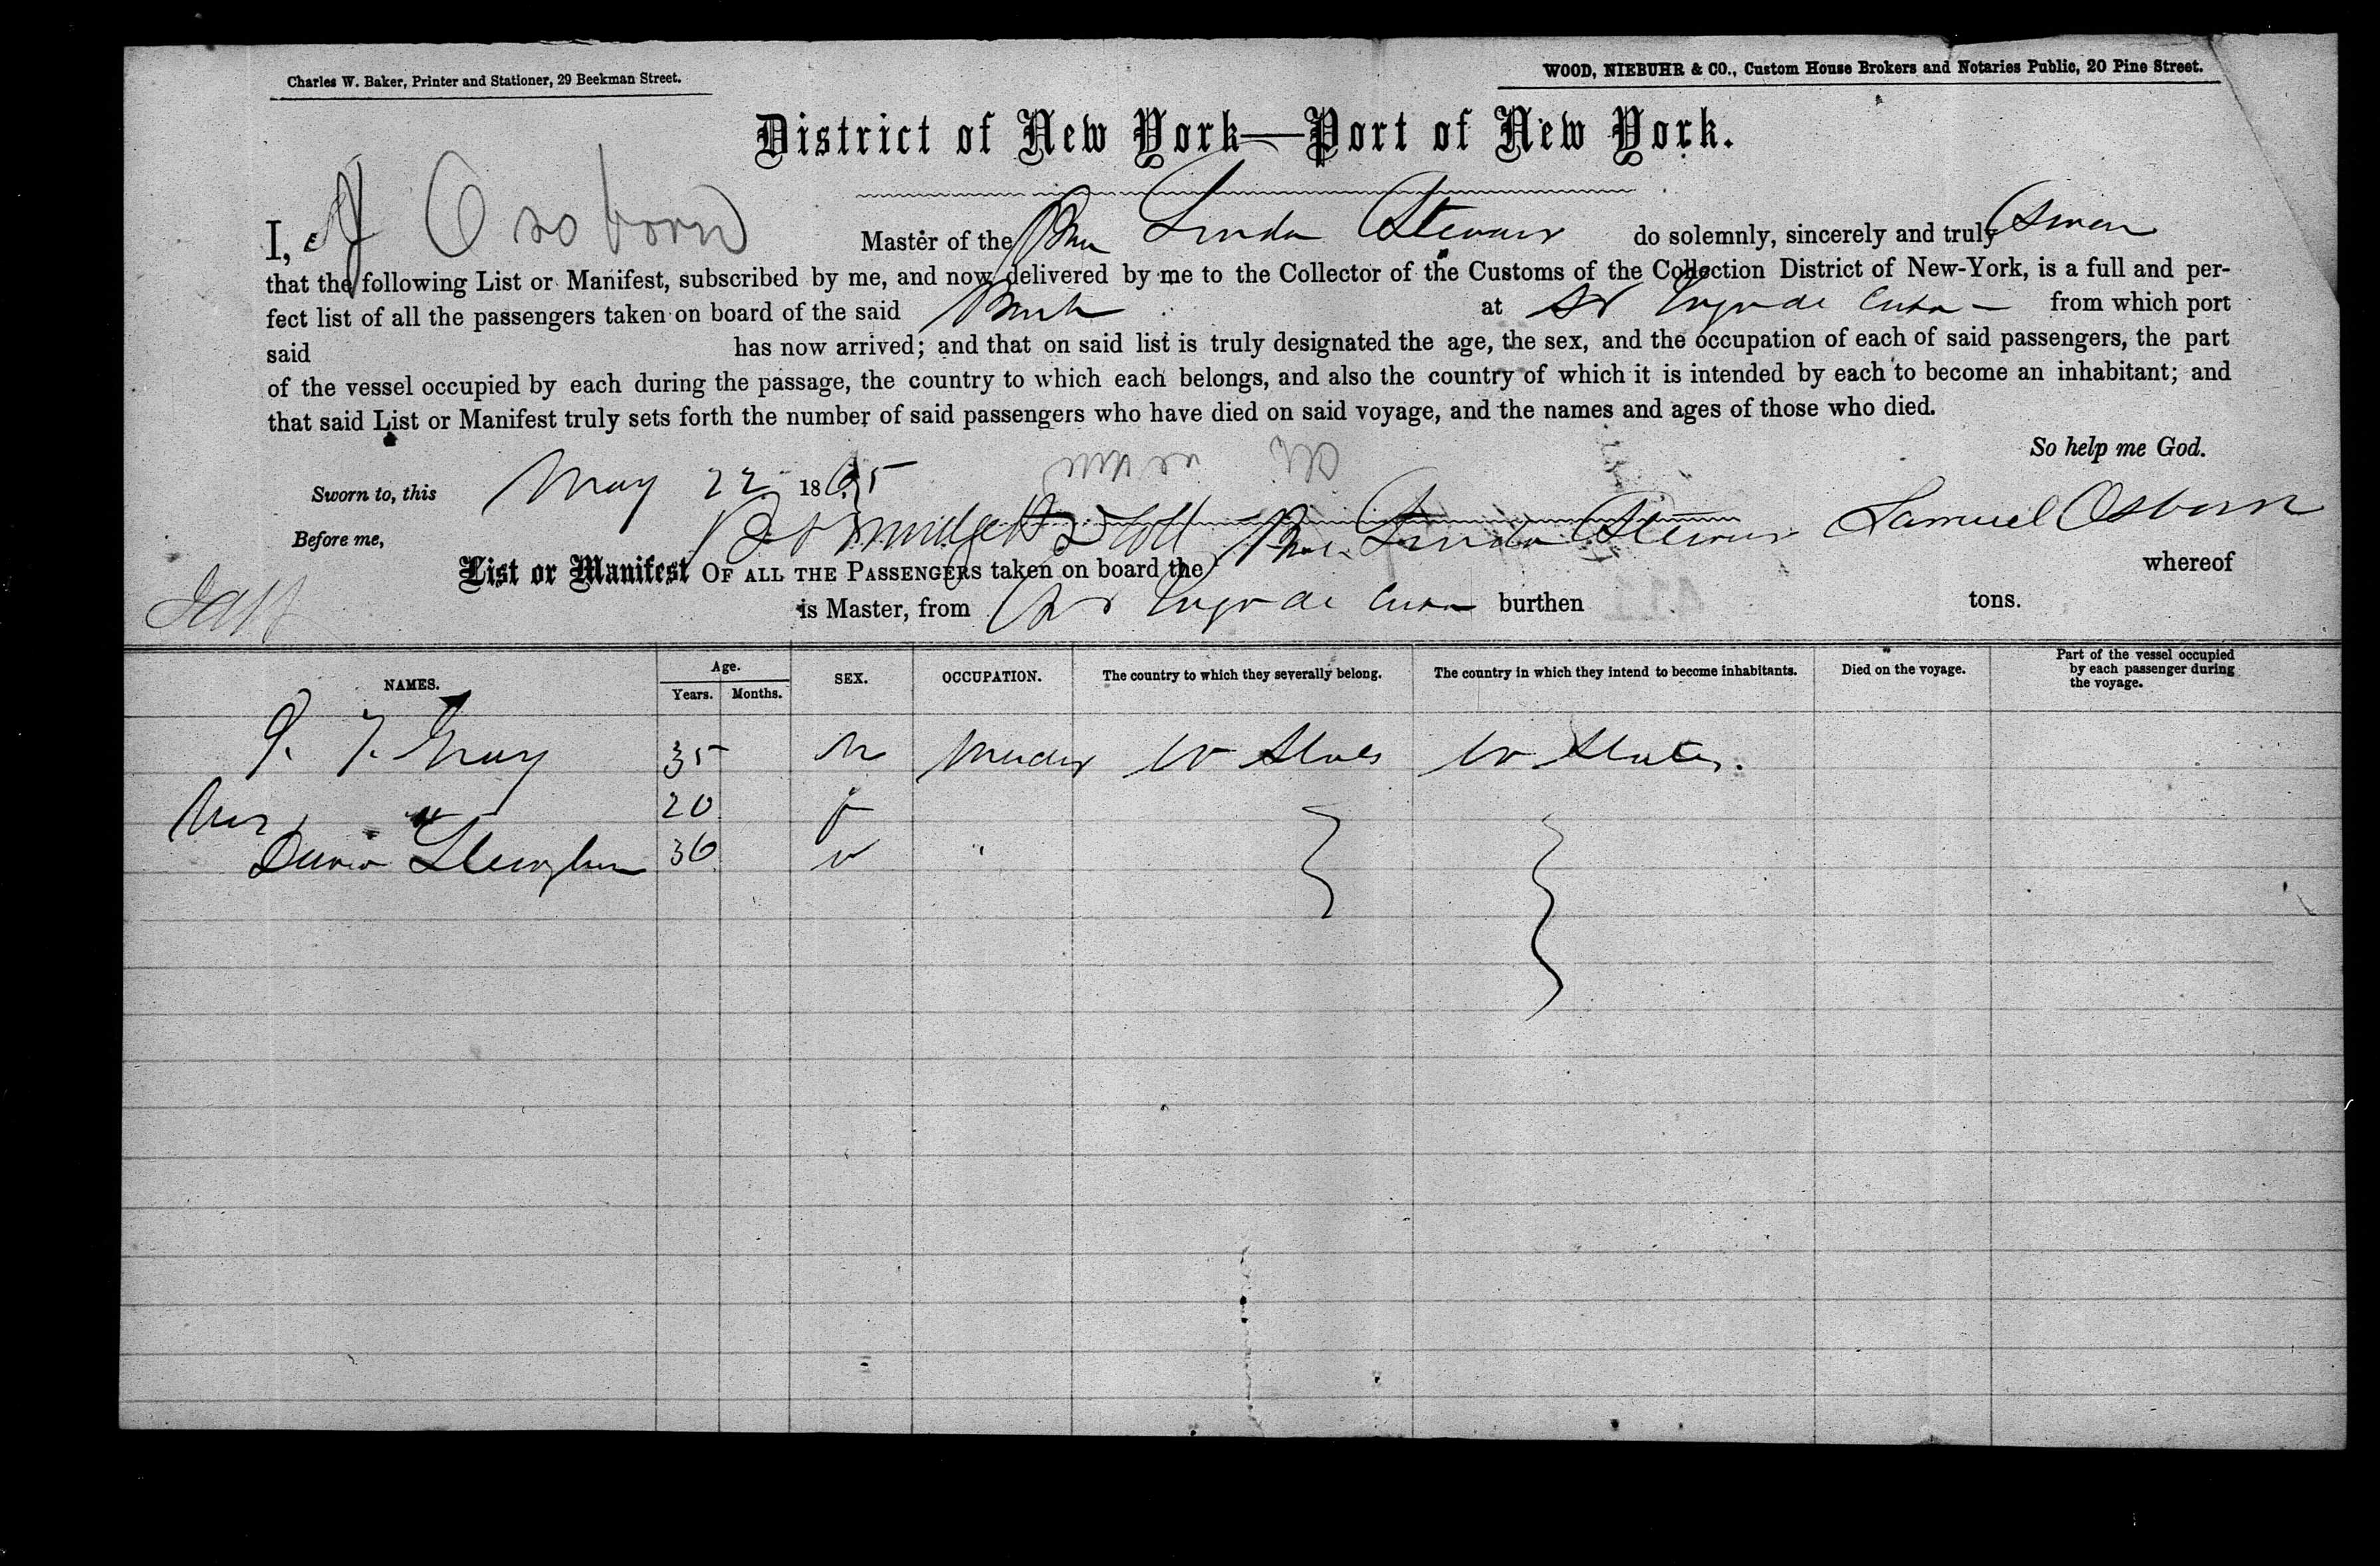 Charles W. Baker, Printer and Stationer, 29 Beekman Street.
WOOD, NIEBUHR & CO., Custom House Brokers and Notaries Public, 20 Pine Street.
District of New York—Port of New York.
I, J Osborn Master of the Linda Stewart do solemnly, sincerely and truly Swear
that the following List or Manifest, subscribed by me, and now delivered by me to the Collector of the Customs of the Collection District of New-York, is a full and per-
fect list of all the passengers taken on board of the said at Cuba from which port
said has now arrived; and that on said list is truly designated the age, the sex, and the occupation of each of said passengers, the part
of the vessel occupied by each during the passage, the country to which each belongs, and also the country of which it is intended by each to become an inhabitant; and
that said List or Manifest truly sets forth the number of said passengers who have died on said voyage, and the names and ages of those who died.
So help me God.
Sworn to, this May 22 1865
Before me, Samuel Osborn
List or Manifest OF ALL THE PASSENGERS taken on board the Linda Stewart whereof
is Master, from Cuba burthen tons.
NAMES. Age. Years. Months. SEX. OCCUPATION. The country to which they severally belong. The country in which they intend to become inhabitants. Died on the voyage. Part of the vessel occupied by each passenger during the voyage.
35 M U States U States.
Mrs " 20 F
36 "